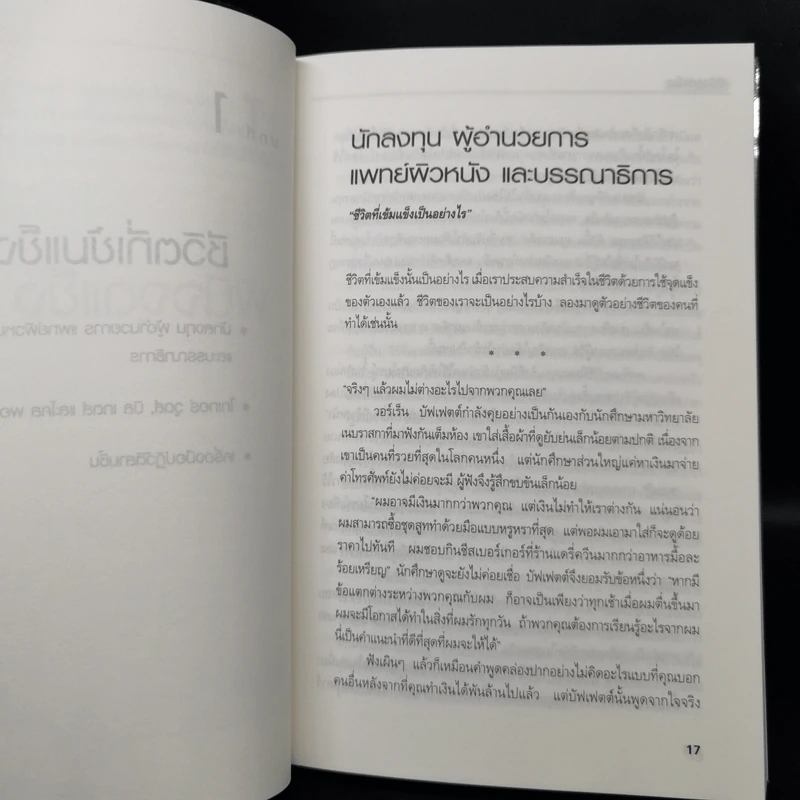 นักลงทุน ผู้อำนวยการ
แพทย์ผิวหนัง และบรรณาธิการ
"ชีวิตที่เข้มแข็งเป็นอย่างไร"
ชีวิตที่เข้มแข็งนั้นเป็นอย่างไร เมื่อเราประสบความสำเร็จในชีวิตด้วยการใช้จุดแข็ง
ของตัวเองแล้ว ชีวิตของเราจะเป็นอย่างไรบ้าง ลองมาดูตัวอย่างชีวิตของคนที่
ทำได้เช่นนั้น
* * *
"จริงๆ แล้วผมไม่ต่างอะไรไปจากพวกคุณเลย"
วอร์เร็น บัฟเฟตต์กำลังคุยอย่างเป็นกันเองกับนักศึกษามหาวิทยาลัย
เนบราสกาที่มาฟังกันเต็มห้อง เขาใส่เสื้อผ้าที่ดูยับย่นเล็กน้อยตามปกติ เนื่องจาก
เขาเป็นคนที่รวยที่สุดในโลกคนหนึ่ง แต่นักศึกษาส่วนใหญ่แค่หาเงินมาจ่าย
ค่าโทรศัพท์ยังไม่ค่อยจะมี ผู้ฟังจึงรู้สึกขบขันเล็กน้อย
"ผมอาจมีเงินมากกว่าพวกคุณ แต่เงินไม่ทำให้เราต่างกัน แน่นอนว่า
ผมสามารถซื้อชุดสูททำด้วยมือแบบหรูหราที่สุด แต่พอผมเอามาใส่ก็จะดูด้อย
ราคาไปทันที ผมชอบกินชีสเบอร์เกอร์ที่ร้านแดรี่ควีนมากกว่าอาหารมื้อละ
ร้อยเหรียญ" นักศึกษาดูจะยังไม่ค่อยเชื่อ บัฟเฟตต์จึงยอมรับข้อหนึ่งว่า "หากมี
ข้อแตกต่างระหว่างพวกคุณกับผม ก็อาจเป็นเพียงว่าทุกเช้าเมื่อผมตื่นขึ้นมา
ผมจะมีโอกาสได้ทำในสิ่งที่ผมรักทุกวัน ถ้าพวกคุณต้องการเรียนรู้อะไรจากผม
นี่เป็นคำแนะนำที่ดีที่สุดที่ผมจะให้ได้"
ฟังเผินๆ แล้วก็เหมือนคำพูดคล่องปากอย่างไม่คิดอะไรแบบที่คุณบอก
คนอื่นหลังจากที่คุณทำเงินได้พันล้านไปแล้ว แต่บัฟเฟตต์นั้นพูดจากใจจริง
17